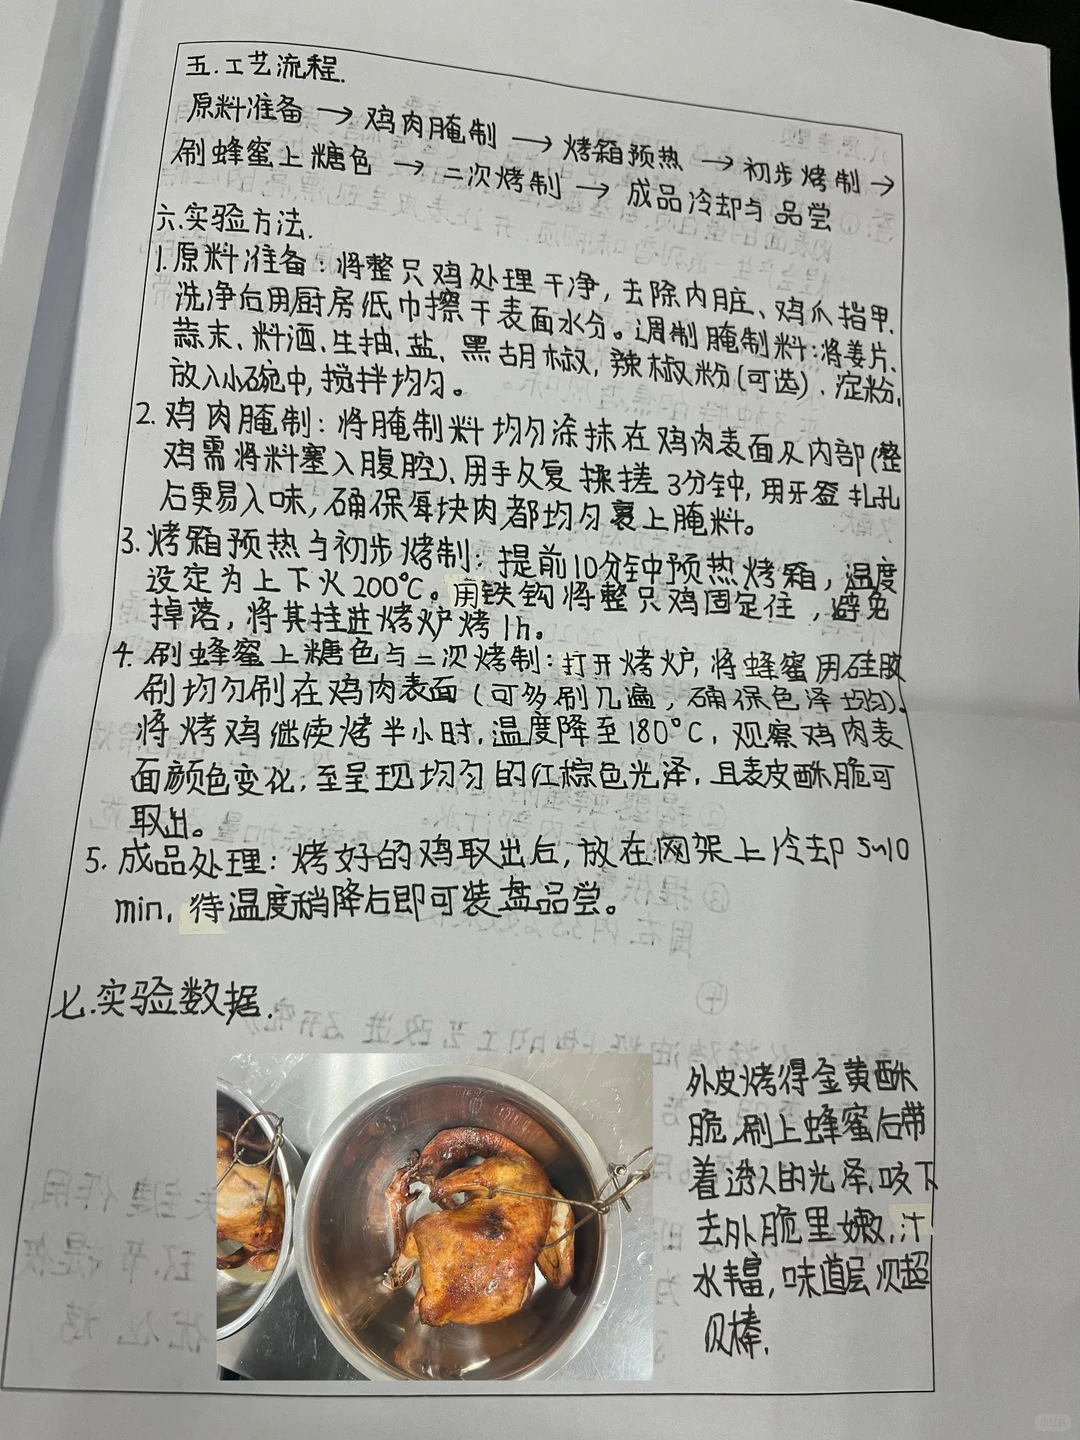 五.工艺流程.
原料准备 → 鸡肉腌制 → 烤箱预热 → 初步烤制 →
刷蜂蜜上糖色 → 二次烤制 → 成品冷却与品尝
六.实验方法.
1.原料准备:将整只鸡处理干净,去除内脏、鸡爪指甲.
洗净后用厨房纸巾擦干表面水分。调制腌制料:将姜片.
蒜末、料酒、生抽、盐、黑胡椒,辣椒粉(可选).淀粉,
放入小碗中,搅拌均匀。
2.鸡肉腌制:将腌制料均匀涂抹在鸡肉表面及内部(整
鸡需将料塞入腹腔)、用手反复揉搓3分钟,用牙签扎孔
后更易入味,确保每块肉都均匀裹上腌料。
3.烤箱预热与初步烤制:提前10分钟预热烤箱,温度
设定为上下火200°C。用铁钩将整只鸡固定住,避免
掉落,将其挂进烤炉烤1h。
4.刷蜂蜜上糖色与二次烤制:打开烤炉,将蜂蜜用硅胶
刷均匀刷在鸡肉表面(可多刷几遍,确保色泽均匀)。
将烤鸡继续烤半小时,温度降至180°C,观察鸡肉表
面颜色变化,至呈现均匀的红棕色光泽,且表皮酥脆可
取出。
5.成品处理:烤好的鸡取出后,放在网架上冷却5~10
min,待温度稍降后即可装盘品尝。
七.实验数据.
外皮烤得金黄酥
脆,刷上蜂蜜后带
着透人的光泽,咬下
去外脆里嫩,汁
水丰富,味道层次超
级棒.
小红书